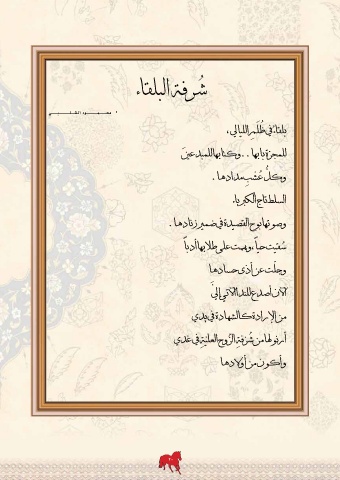 شُرفة البلقاء
محمود الشلبي
بلقاءُ في ظُلَم الليالي،
للمجرة بابها .. وكتابها للمبدعينَ
وكلُّ عُشبٍ مدادها .
السلط تاج الكبرياء
وصوتها بوح القصيدة في ضمير زنادها .
سُقيت حياً، وهمت على طلابها أدباً
وجلت عن أذى حسادها
الآن أصدع للندا الآتي إليَّ
من الإرادة كالشهادة في يدي
أرنو لها من شرفة الرّوح العليّة في غدي
وأكون من أولادها